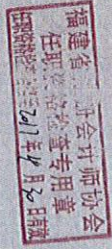 福建省 会计师协会
任职资格检查专用章
2011年4月30日前有效